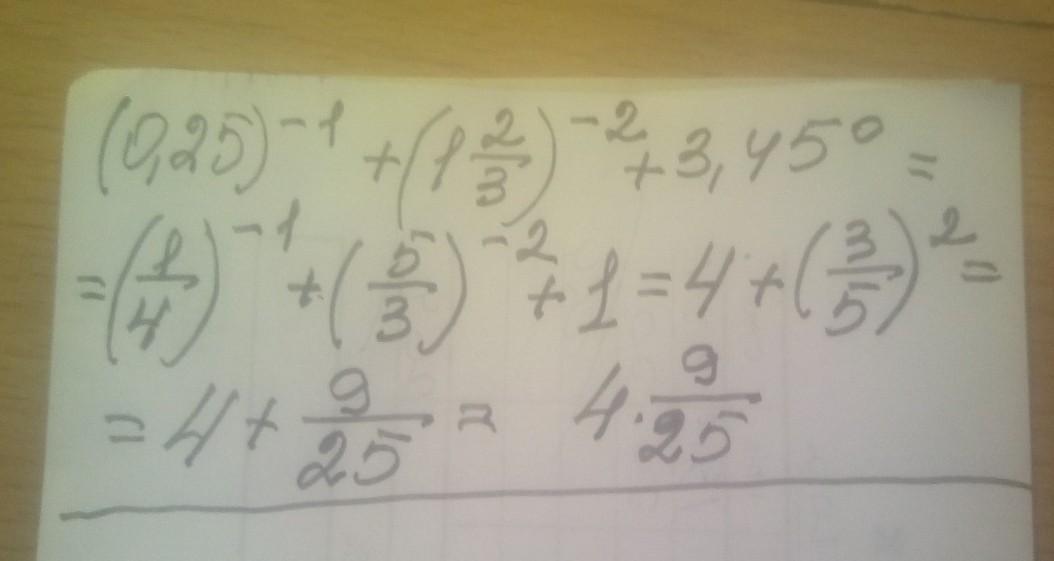 (0,25)⁻¹ + (1 2/3)⁻² + 3,45⁰ =
= (1/4)⁻¹ + (5/3)⁻² + 1 = 4 + (3/5)² =
= 4 + 9/25 = 4 · 9/25